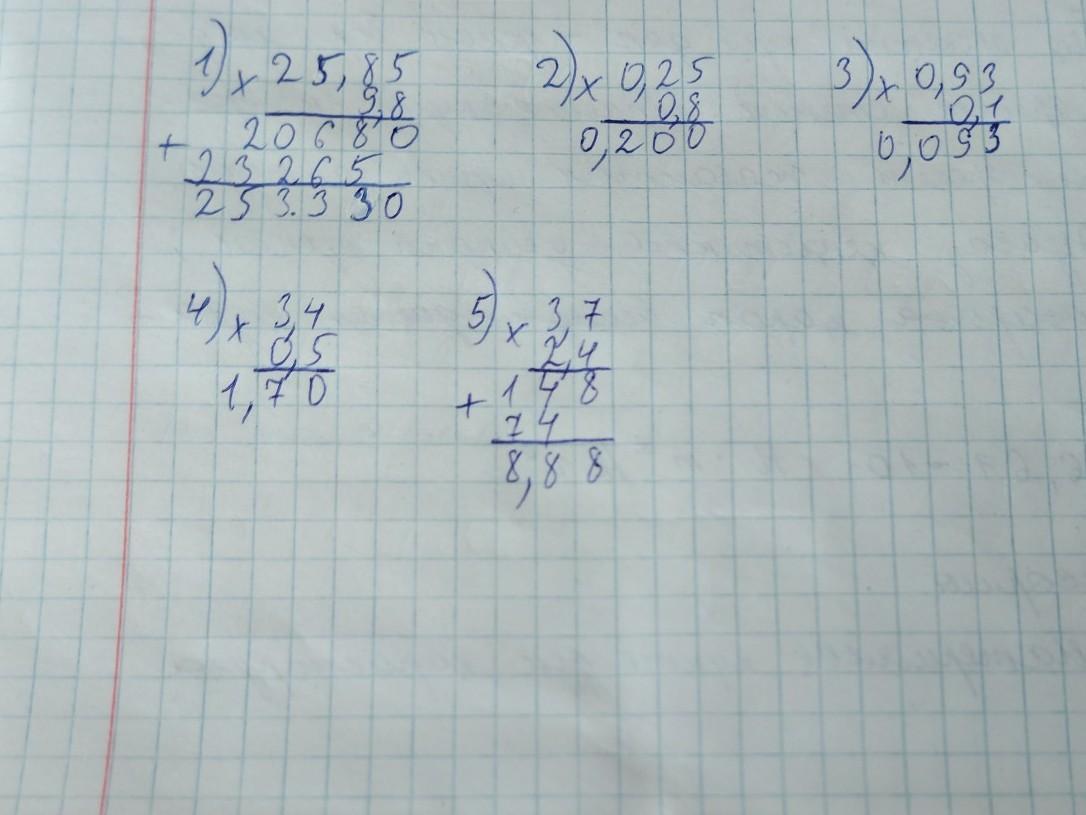 1) × 25,85
9,8
+ 20680
23265
253.330
2) × 0,25
0,8
0,200
3) × 0,93
0,1
0,093
4) × 3,4
0,5
1,70
5) × 3,7
2,4
+ 148
74
8,88